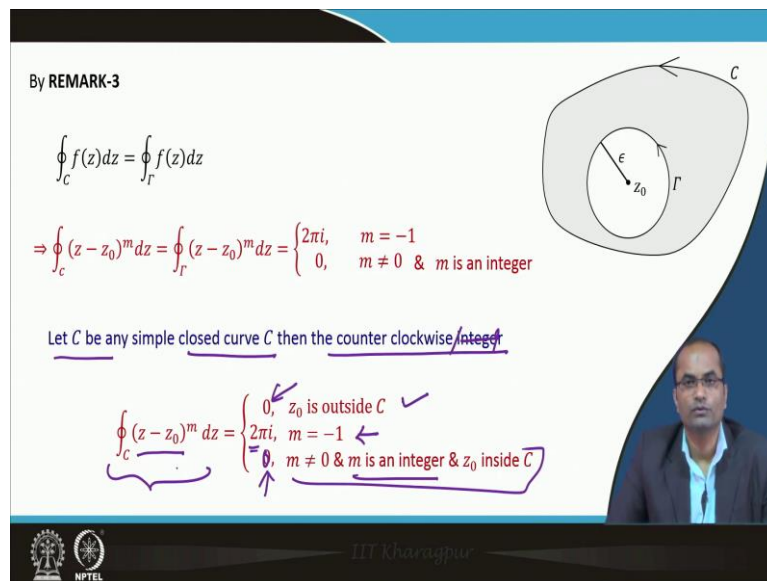 By REMARK-3
C
∮_C f(z)dz = ∮_Γ f(z)dz
ϵ
z₀
Γ
⇒ ∮_c (z − z₀)^m dz = ∮_Γ (z − z₀)^m dz = { 2πi, m = −1
0, m ≠ 0 & m is an integer
Let C be any simple closed curve C then the counter clockwise integer
∮_C (z − z₀)^m dz = { 0, z₀ is outside C
2πi, m = −1
0, m ≠ 0 & m is an integer & z₀ inside C
IIT Kharagpur
NPTEL